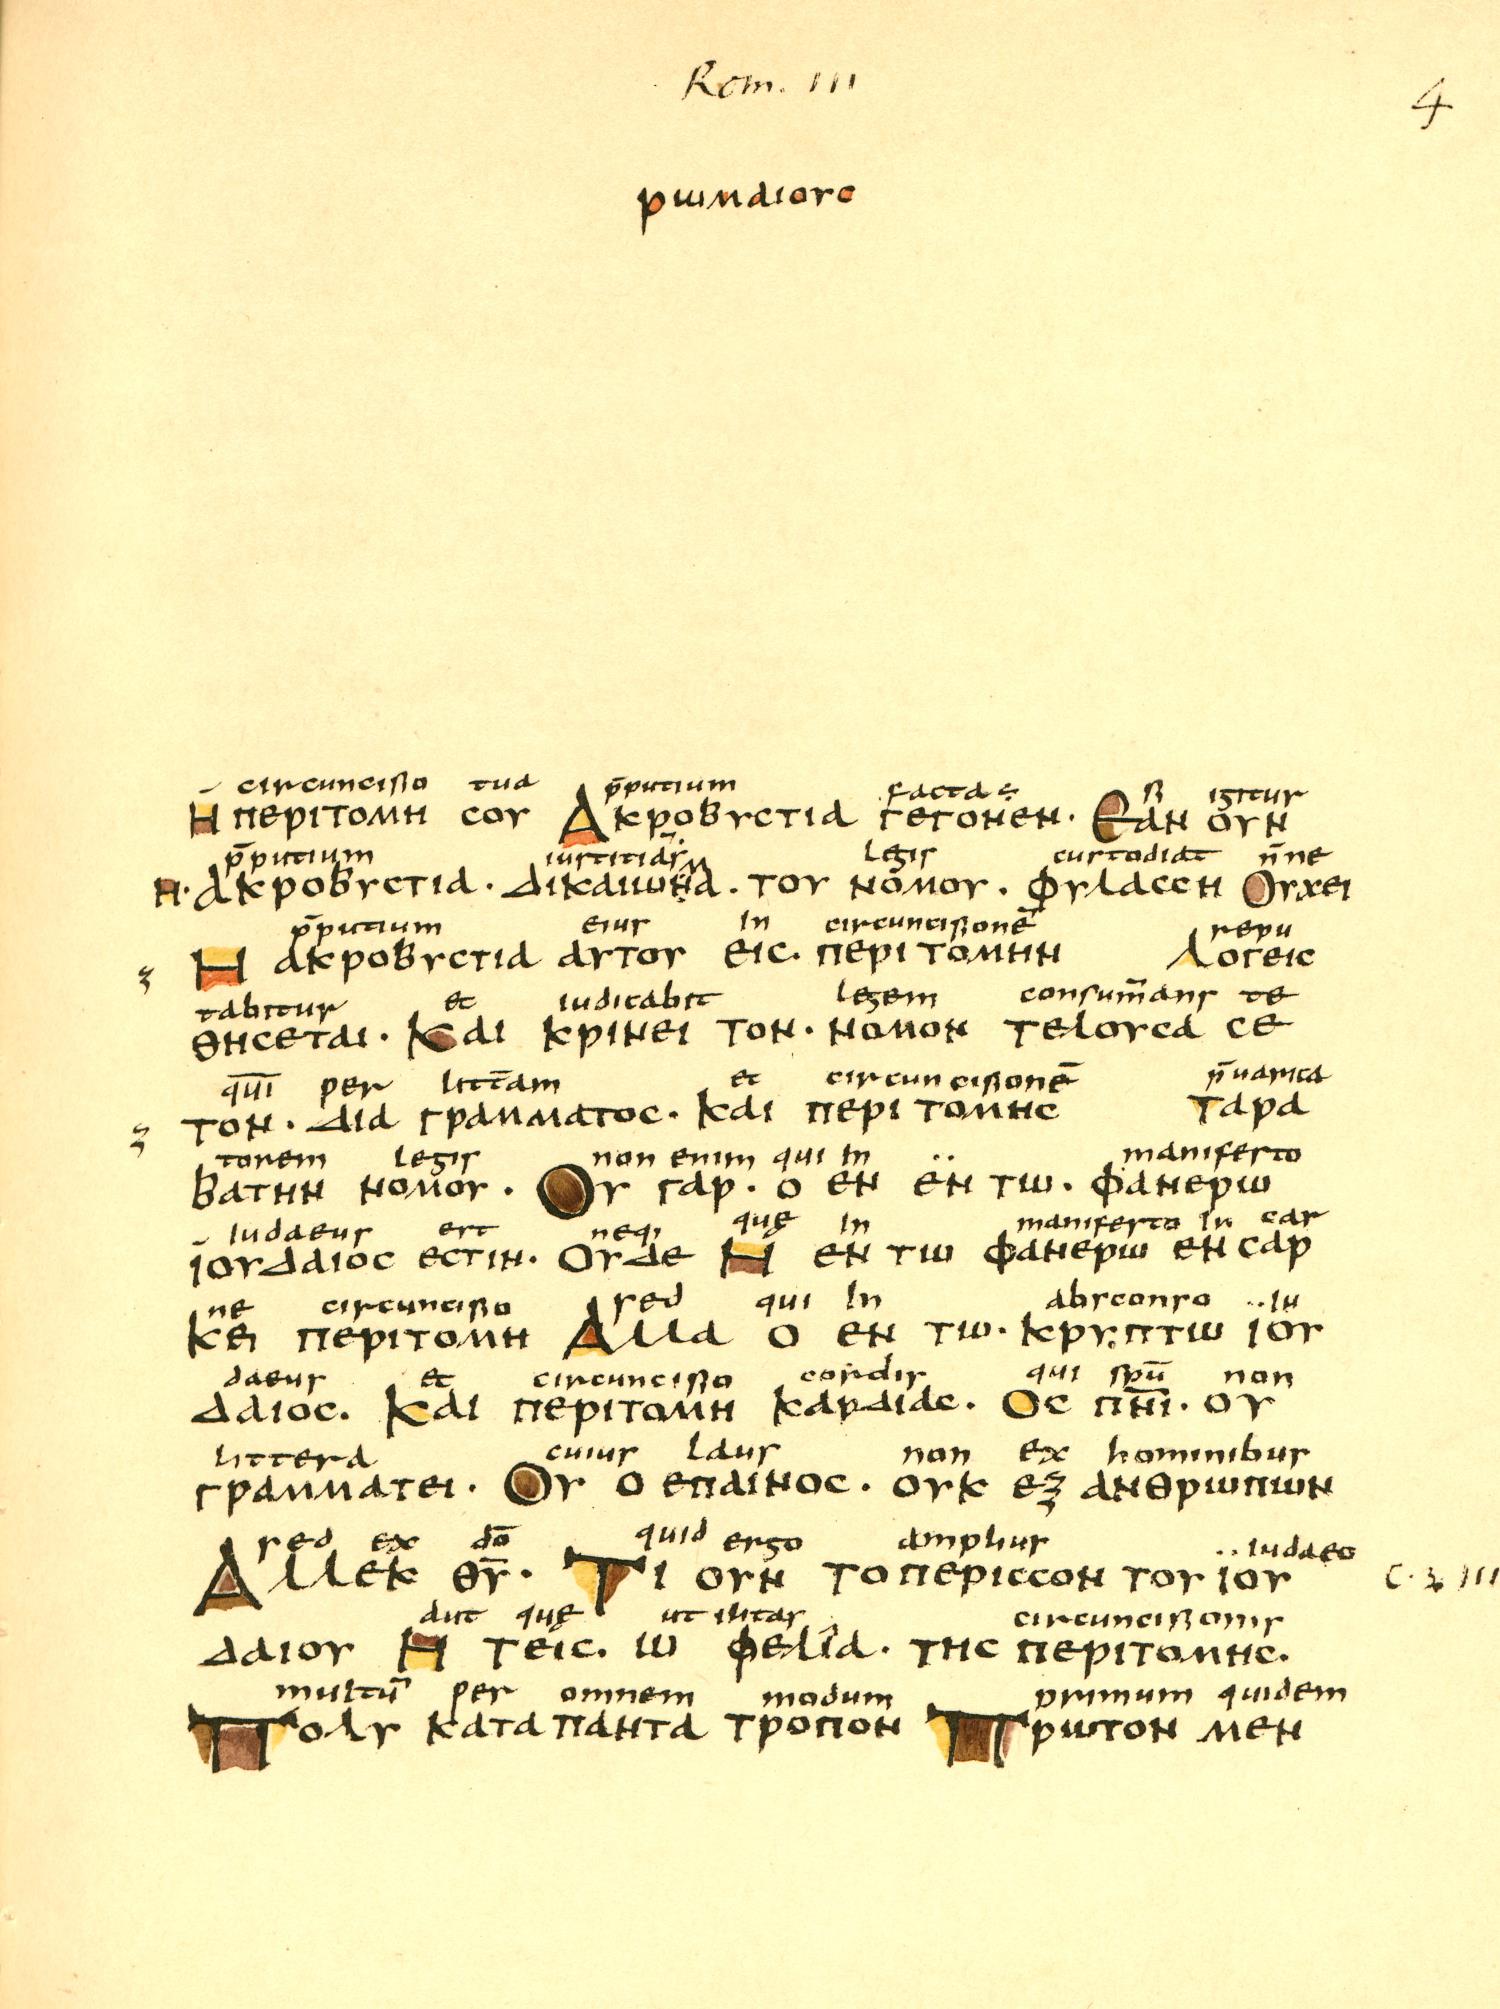 Rom. III
4
ρωμαιουc
circunciſſio tua p̄putium facta ē ſi igitur
Η περιτομη cου Ακροβυcτια γεγονεν· Εαν ουν
p̄putium iuſtitiaſ legiſ cuſtodiat n̄ne
η· ακροβυcτια· δικαιωμα· του νομου· φυλαccη Ουχει
p̄putium eiuſ in circunciſſionē repu
Η ακροβυcτια αυτου ειc· περιτομην λογειc
tabitur et iudicabit legem conſum̄anſ te
θηcεται· Και κρινει τον· νομον τελουcα cε
qui per litt̄am et circunciſſionē p̄uarica
τον· δια γραμματοc· και περιτομηc παρα
torem legiſ non enim qui in manifeſto
βατην νομου· Ου γαρ· ο εν εν τω· φανερω
iudaeuſ eſt neq; quę in manifeſto in car
ιουδαιοc εcτιν· Ουδε Η εν τω φανερω εν cαρ
ne circunciſſio ſed qui in abſconſo iu
κει περιτομη Αλλα ο εν τω· κρυπτω ιου
daeuſ et circunciſſio cordiſ qui ſpū non
δαιοc· Και περιτομη καρδιαc· Οc πν̄ι· ου
littera cuiuſ lauſ non ex hominibuſ
γραμματει· Ου ο επαινοc· ουκ εξ ανθρωπων
ſed ex dō quid ergo ampliuſ iudaeo
Αλλεκ θῡ· Τι ουν το περιccον του ιου
C· III
aut quę utilitaſ circunciſſioniſ
δαιου Η τειc· ω φελια· τηc περιτομηc·
multū per omnem modum primum quidem
Πολυ κατα παντα τροπον Πρωτον μεν